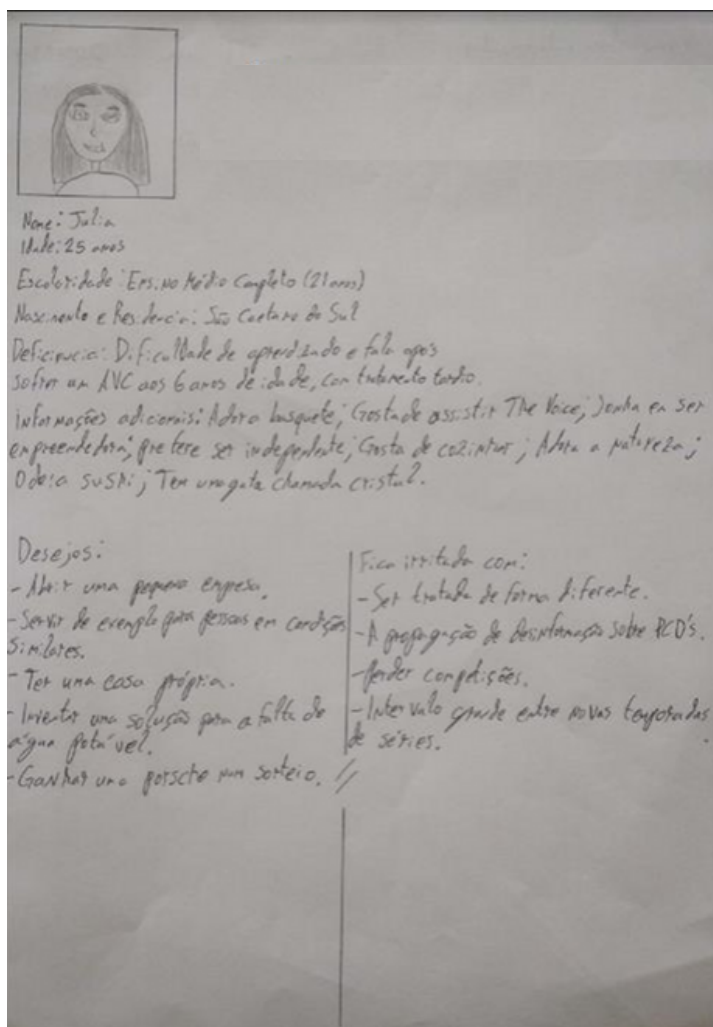 Nome: Julia
Idade: 25 anos
Escolaridade: Ensino Médio Completo (21 anos)
Nascimento e Residencia: São Caetano do Sul
Deficiencia: Dificuldade de aprendizado e fala após
sofrer um AVC aos 6 anos de idade, com tratamento tardio.
Informações adicionais: Adora basquete; Gosta de assistir The Voice; Sonha em ser
empreendedora; prefere ser independente; Gosta de cozinhar; Adora a natureza;
Odeia sushi; Tem uma gata chamada cristal.
Desejos:
- Abrir uma pequena empresa.
- Servir de exemplo para pessoas em condições
Similares.
- Ter uma casa própria.
- Inventar uma solução para a falta de
água potável.
- Ganhar uma porsche num sorteio. //
Fica irritada com:
- Ser tratada de forma diferente.
- A propagação de desinformação sobre PCD's.
- Perder competições.
- Intervalo grande entre novas temporadas
de séries.